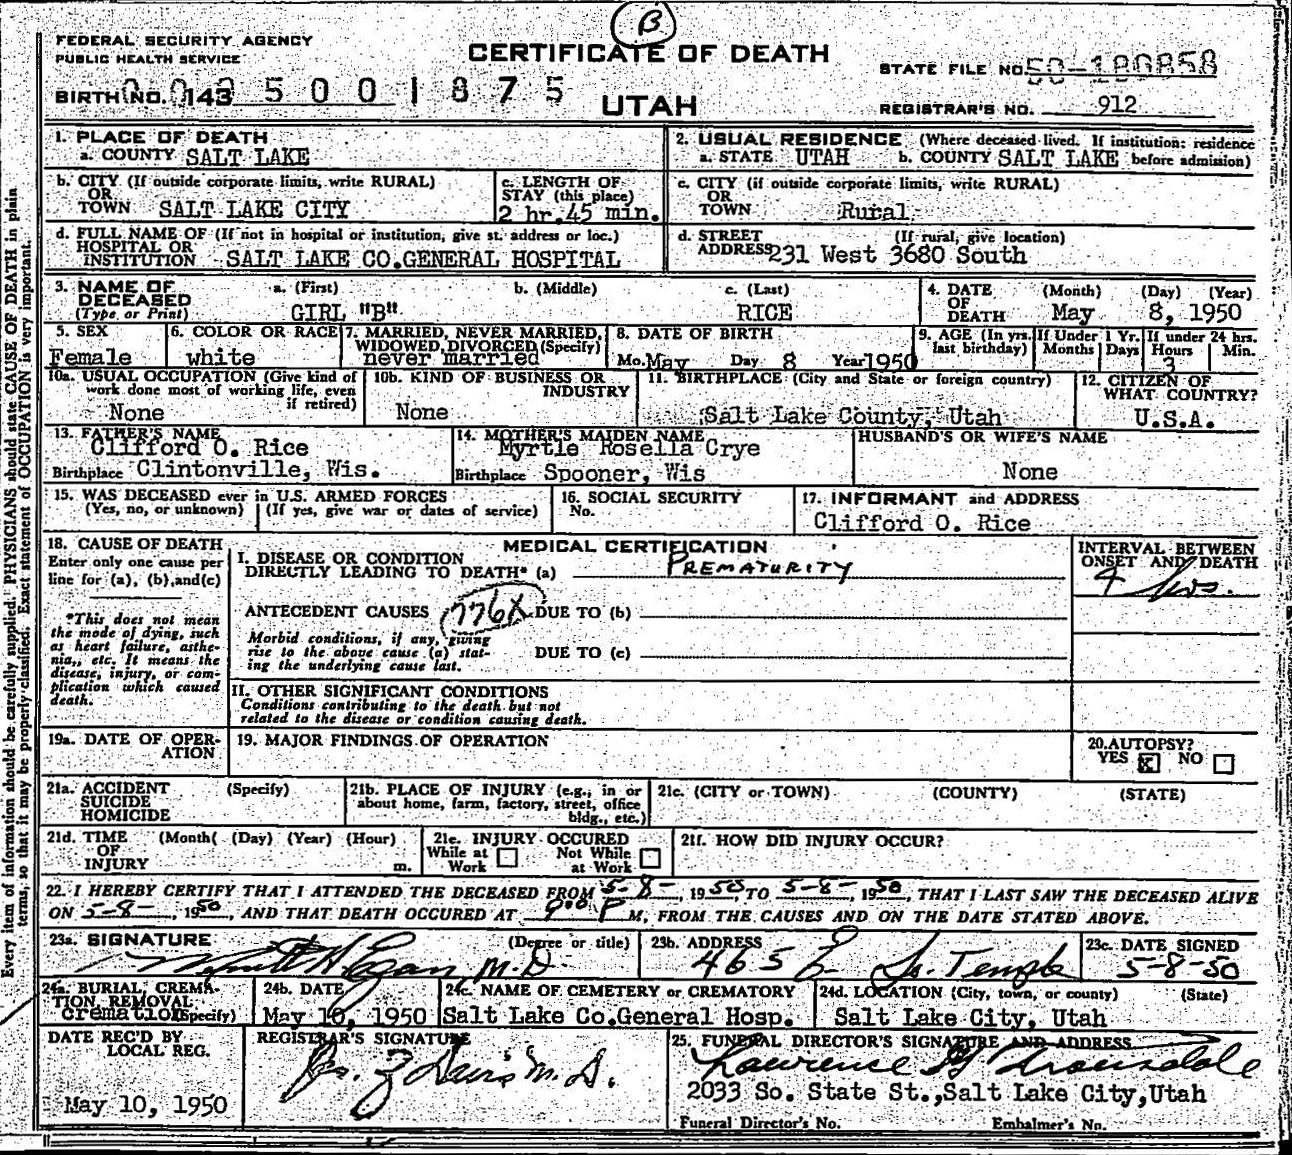 B
FEDERAL SECURITY AGENCY
PUBLIC HEALTH SERVICE
CERTIFICATE OF DEATH
STATE FILE NO. 50-180858
BIRTH NO. 143 5001875
UTAH
REGISTRAR'S NO. 912
1. PLACE OF DEATH
a. COUNTY SALT LAKE
2. USUAL RESIDENCE (Where deceased lived. If institution: residence
a. STATE UTAH b. COUNTY SALT LAKE before admission)
b. CITY (If outside corporate limits, write RURAL)
OR
TOWN SALT LAKE CITY
c. LENGTH OF
STAY (this place)
2 hr. 45 min.
c. CITY (if outside corporate limits, write RURAL)
OR
TOWN Rural
d. FULL NAME OF (If not in hospital or institution, give st. address or loc.)
HOSPITAL OR
INSTITUTION SALT LAKE CO.GENERAL HOSPITAL
d. STREET (If rural, give location)
ADDRESS 231 West 3680 South
3. NAME OF a. (First) b. (Middle) c. (Last)
DECEASED
(Type or Print) GIRL "B" RICE
4. DATE (Month) (Day) (Year)
OF
DEATH May 8, 1950
5. SEX
Female
6. COLOR OR RACE
white
7. MARRIED, NEVER MARRIED,
WIDOWED, DIVORCED (Specify)
never married
8. DATE OF BIRTH
Mo. May Day 8 Year 1950
9. AGE (In yrs. last birthday)
If Under 1 Yr.
Months Days
If under 24 hrs.
Hours Min.
3
10a. USUAL OCCUPATION (Give kind of
work done most of working life, even
if retired)
None
10b. KIND OF BUSINESS OR
INDUSTRY
None
11. BIRTHPLACE (City and State or foreign country)
Salt Lake County, Utah
12. CITIZEN OF
WHAT COUNTRY?
U.S.A.
13. FATHER'S NAME
Clifford O. Rice
Birthplace Clintonville, Wis.
14. MOTHER'S MAIDEN NAME
Myrtle Rosella Crye
Birthplace Spooner, Wis
HUSBAND'S OR WIFE'S NAME
None
15. WAS DECEASED ever in U.S. ARMED FORCES
(Yes, no, or unknown) (If yes, give war or dates of service)
16. SOCIAL SECURITY
No.
17. INFORMANT and ADDRESS
Clifford O. Rice
18. CAUSE OF DEATH
Enter only one cause per
line for (a), (b), and (c)
*This does not mean
the mode of dying, such
as heart failure, asthe-
nia,, etc. It means the
disease, injury, or com-
plication which caused
death.
MEDICAL CERTIFICATION
I. DISEASE OR CONDITION
DIRECTLY LEADING TO DEATH* (a) PREMATURITY
ANTECEDENT CAUSES 776X DUE TO (b)
Morbid conditions, if any, giving
rise to the above cause (a) stat-
ing the underlying cause last.
DUE TO (c)
II. OTHER SIGNIFICANT CONDITIONS
Conditions contributing to the death but not
related to the disease or condition causing death.
INTERVAL BETWEEN
ONSET AND DEATH
4 hrs.
19a. DATE OF OPER-
ATION
19. MAJOR FINDINGS OF OPERATION
20. AUTOPSY?
YES X NO
21a. ACCIDENT (Specify)
SUICIDE
HOMICIDE
21b. PLACE OF INJURY (e.g., in or
about home, farm, factory, street, office
bldg., etc.)
21c. (CITY or TOWN) (COUNTY) (STATE)
21d. TIME (Month( (Day) (Year) (Hour)
OF
INJURY m.
21e. INJURY OCCURED
While at Work Not While at Work
21f. HOW DID INJURY OCCUR?
22. I HEREBY CERTIFY THAT I ATTENDED THE DECEASED FROM 5-8-, 1950, TO 5-8-, 1950, THAT I LAST SAW THE DECEASED ALIVE
ON 5-8-, 1950, AND THAT DEATH OCCURED AT 9:00 P M, FROM THE CAUSES AND ON THE DATE STATED ABOVE.
23a. SIGNATURE (Degree or title)
M.D.
23b. ADDRESS
465 E. So. Temple
23c. DATE SIGNED
5-8-50
24a. BURIAL, CREMA-
TION, REMOVAL
cremation (Specify)
24b. DATE
May 10, 1950
24c. NAME OF CEMETERY or CREMATORY
Salt Lake Co.General Hosp.
24d. LOCATION (City, town, or county) (State)
Salt Lake City, Utah
DATE REC'D BY
LOCAL REG.
May 10, 1950
REGISTRAR'S SIGNATURE
M.D.
25. FUNERAL DIRECTOR'S SIGNATURE AND ADDRESS
Lawrence
2033 So. State St.,Salt Lake City,Utah
Funeral Director's No. Embalmer's No.
Every item of information should be carefully supplied. PHYSICIANS should state CAUSE OF DEATH in plain
terms, so that it may be properly classified. Exact statement of OCCUPATION is very important.